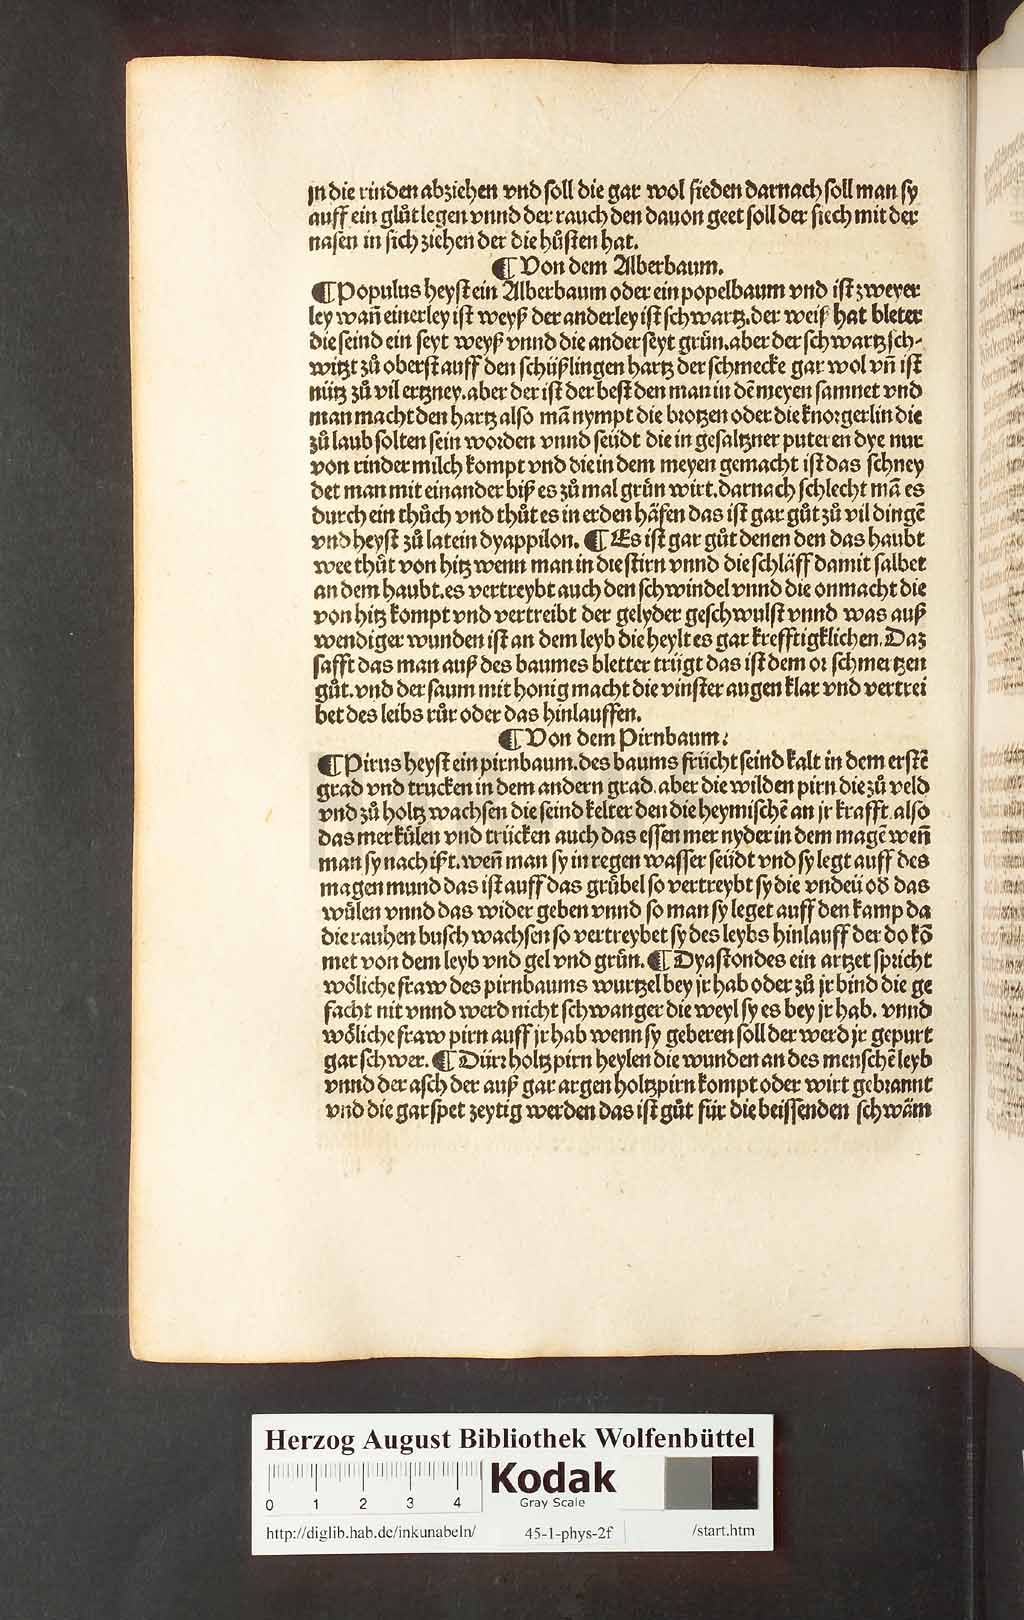 jn die rinden abziehen vnd soll die gar wol sieden darnach soll man sy
auff ein glůt legen vnnd der rauch den dauon geet soll der siech mit der
nasen in sich ziehen der die hůsten hat.
¶ Von dem Alberbaum.
¶ Populus heyst ein Alberbaum oder ein popelbaum vnd ist zweyer
ley wañ einerley ist weyß der anderley ist schwartz. der weiß hat bleter
die seind ein seyt weyß vnnd die ander seyt grůn. aber der schwartz sch-
witzt zů oberst auff den schüßlingen hartz der schmecke gar wol vñ ist
nütz zů vil ertzney. aber der ist der best den man in dẽ meyen samnet vnd
man macht den hartz also mã nympt die brotzen oder die knorgerlin die
zů laub solten sein worden vnnd seüdt die in gesaltzner puteren dye nur
von rinder milch kompt vnd die in dem meyen gemacht ist das schney
det man mit einander biß es zů mal grůn wirt. darnach schlecht mã es
durch ein thůch vnd thůt es in erden häfen das ist gar gůt zů vil dingẽ
vnd heyst zů latein dyappilon. ¶ Es ist gar gůt denen den das haubt
wee thůt von hitz wenn man in die stirn vnnd die schläff damit salbet
an dem haubt. es vertreybt auch den schwindel vnnd die onmacht die
von hitz kompt vnd vertreibt der gelyder geschwulst vnnd was auß
wendiger wunden ist an dem leyb die heylt es gar krefftigklichen. Daz
safft das man auß des baumes bletter trügt das ist dem or schmertzen
gůt. vnd der saum mit honig macht die vinster augen klar vnd vertrei
bet des leibs růr oder das hinlauffen.
¶ Von dem Pirnbaum.
¶ Pirus heyst ein pirnbaum. des baums frücht seind kalt in dem erstẽ
grad vnd trucken in dem andern grad. aber die wilden pirn die zů veld
vnd zů holtz wachsen die seind kelter den die heymischẽ an jr krafft. also
das mer kůlen vnd trücken auch das essen mer nyder in dem magẽ weñ
man sy nach ißt. weñ man sy in regen wasser seüdt vnd sy legt auff des
magen mund das ist auff das grůbel so vertreybt sy die vndeü od das
wůlen vnnd das wider geben vnnd so man sy leget auff den kamp da
die rauhen busch wachsen so vertreybet sy des leybs hinlauff der do kõ
met von dem leyb vnd gel vnd grůn. ¶ Dyastondes ein artzet spricht
wöliche fraw des pirnbaums wurtzel bey jr hab oder zů jr bind die ge
facht nit vnnd werd nicht schwanger die weyl sy es bey jr hab. vnnd
wöliche fraw pirn auff jr hab wenn sy geberen soll der werd jr gepurt
gar schwer. ¶ Dürr holtzpirn heylen die wunden an des menschẽ leyb
vnnd der asch der auß gar argen holtzpirn kompt oder wirt gebrannt
vnd die gar spet zeytig werden das ist gůt für die beissenden schwäm
Herzog August Bibliothek Wolfenbüttel
0 1 2 3 4
Kodak
Gray Scale
http://diglib.hab.de/inkunabeln/ 45-1-phys-2f /start.htm